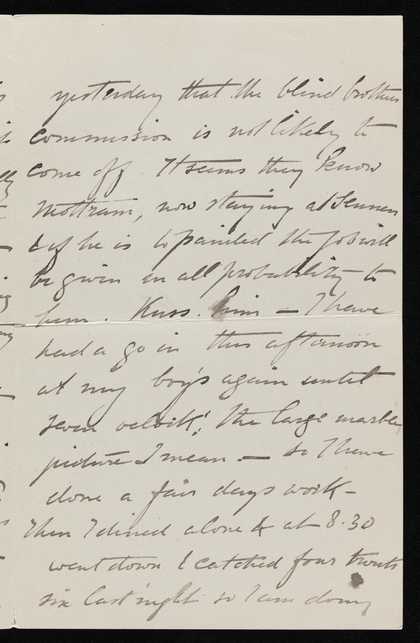 yesterday that the blind brothers
commission is not likely to
come off. It seems they know
Mottram, now staying at Sennen
& if he is to painted the job will
be given in all probability to
him. Kuss. him — I have
had a go in this afternoon
at my boys again until
seven oclock! the large marble
picture I mean — so I have
done a fair days work —
Then I dined alone & at 8.30
went down & catched four trouts
six last night so I am doing